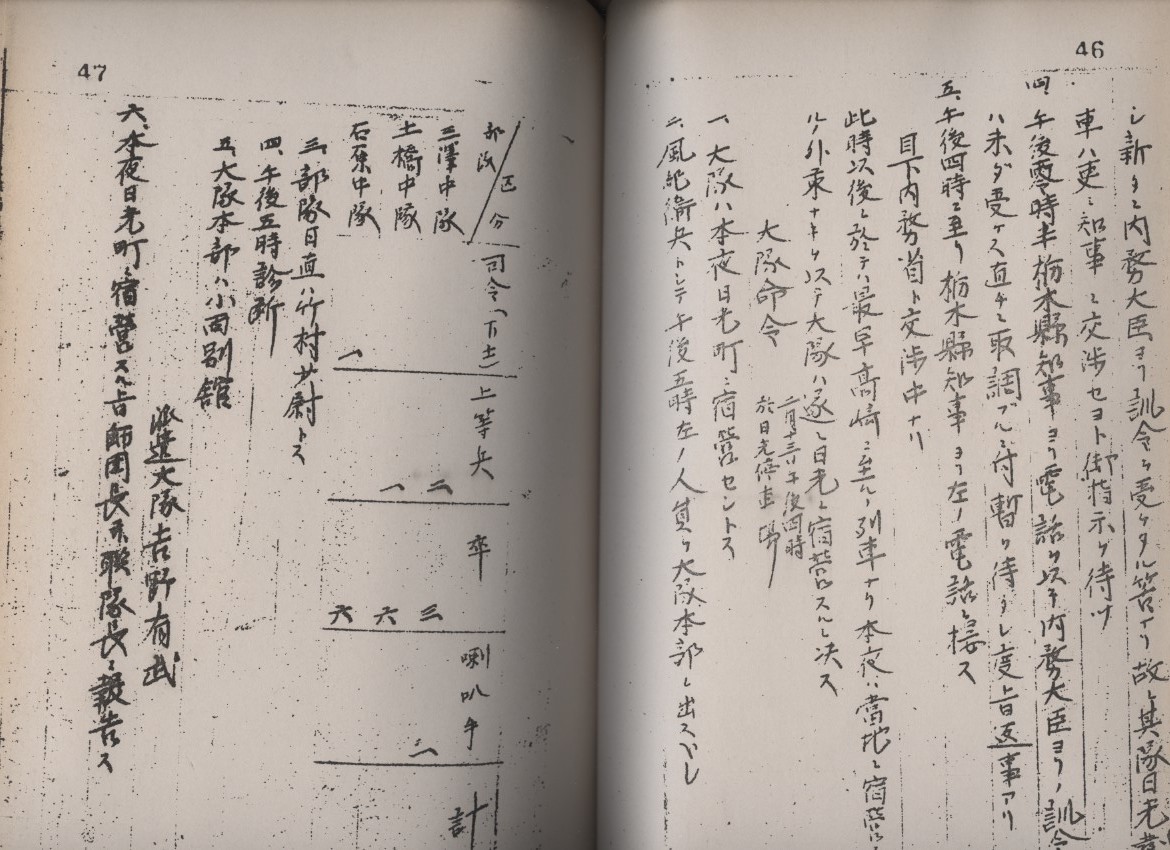 46
シ新タニ内務大臣ヨリ訓令ヲ受ケタル筈ナリ故ニ其隊日光発
車ハ更ニ知事ト交渉セヨト御指示ヲ待ツ
四、午後零時半栃木縣知事ヨリ電話ヲ以テ内務大臣ヨリノ訓令
ハ未ダ受ケス直チニ取調ブルニ付暫ク待タレ度旨返事アリ
五、午後四時ニ至リ栃木縣知事ヨリ左ノ電話ニ接ス
目下内務省ト交渉中ナリ
此時以後ニ於テハ最早高崎ニ至ルノ列車ナク本夜ハ當地ニ宿営
ルノ外策ナキヲ以テ大隊ハ遂ニ日光ニ宿営スルニ決ス
大隊命令
二月十三日午後四時
於日光停車場
一、大隊ハ本夜日光町ニ宿営セントス
二、風紀衛兵トシテ午後五時左ノ人員ヲ大隊本部ニ出スヘシ
47
部隊 区分 司令(下士) 上等兵 卒 喇叭手 計
三澤中隊 二 三
土橋中隊 一 六 一
石原中隊 一 六
三、部隊日直ハ竹村少尉トス
四、午後五時診断
五、大隊本部ハ小西別館
派遣大隊長吉野有武
六、本夜日光町ニ宿営スル旨師団長及聯隊長ニ報告ス